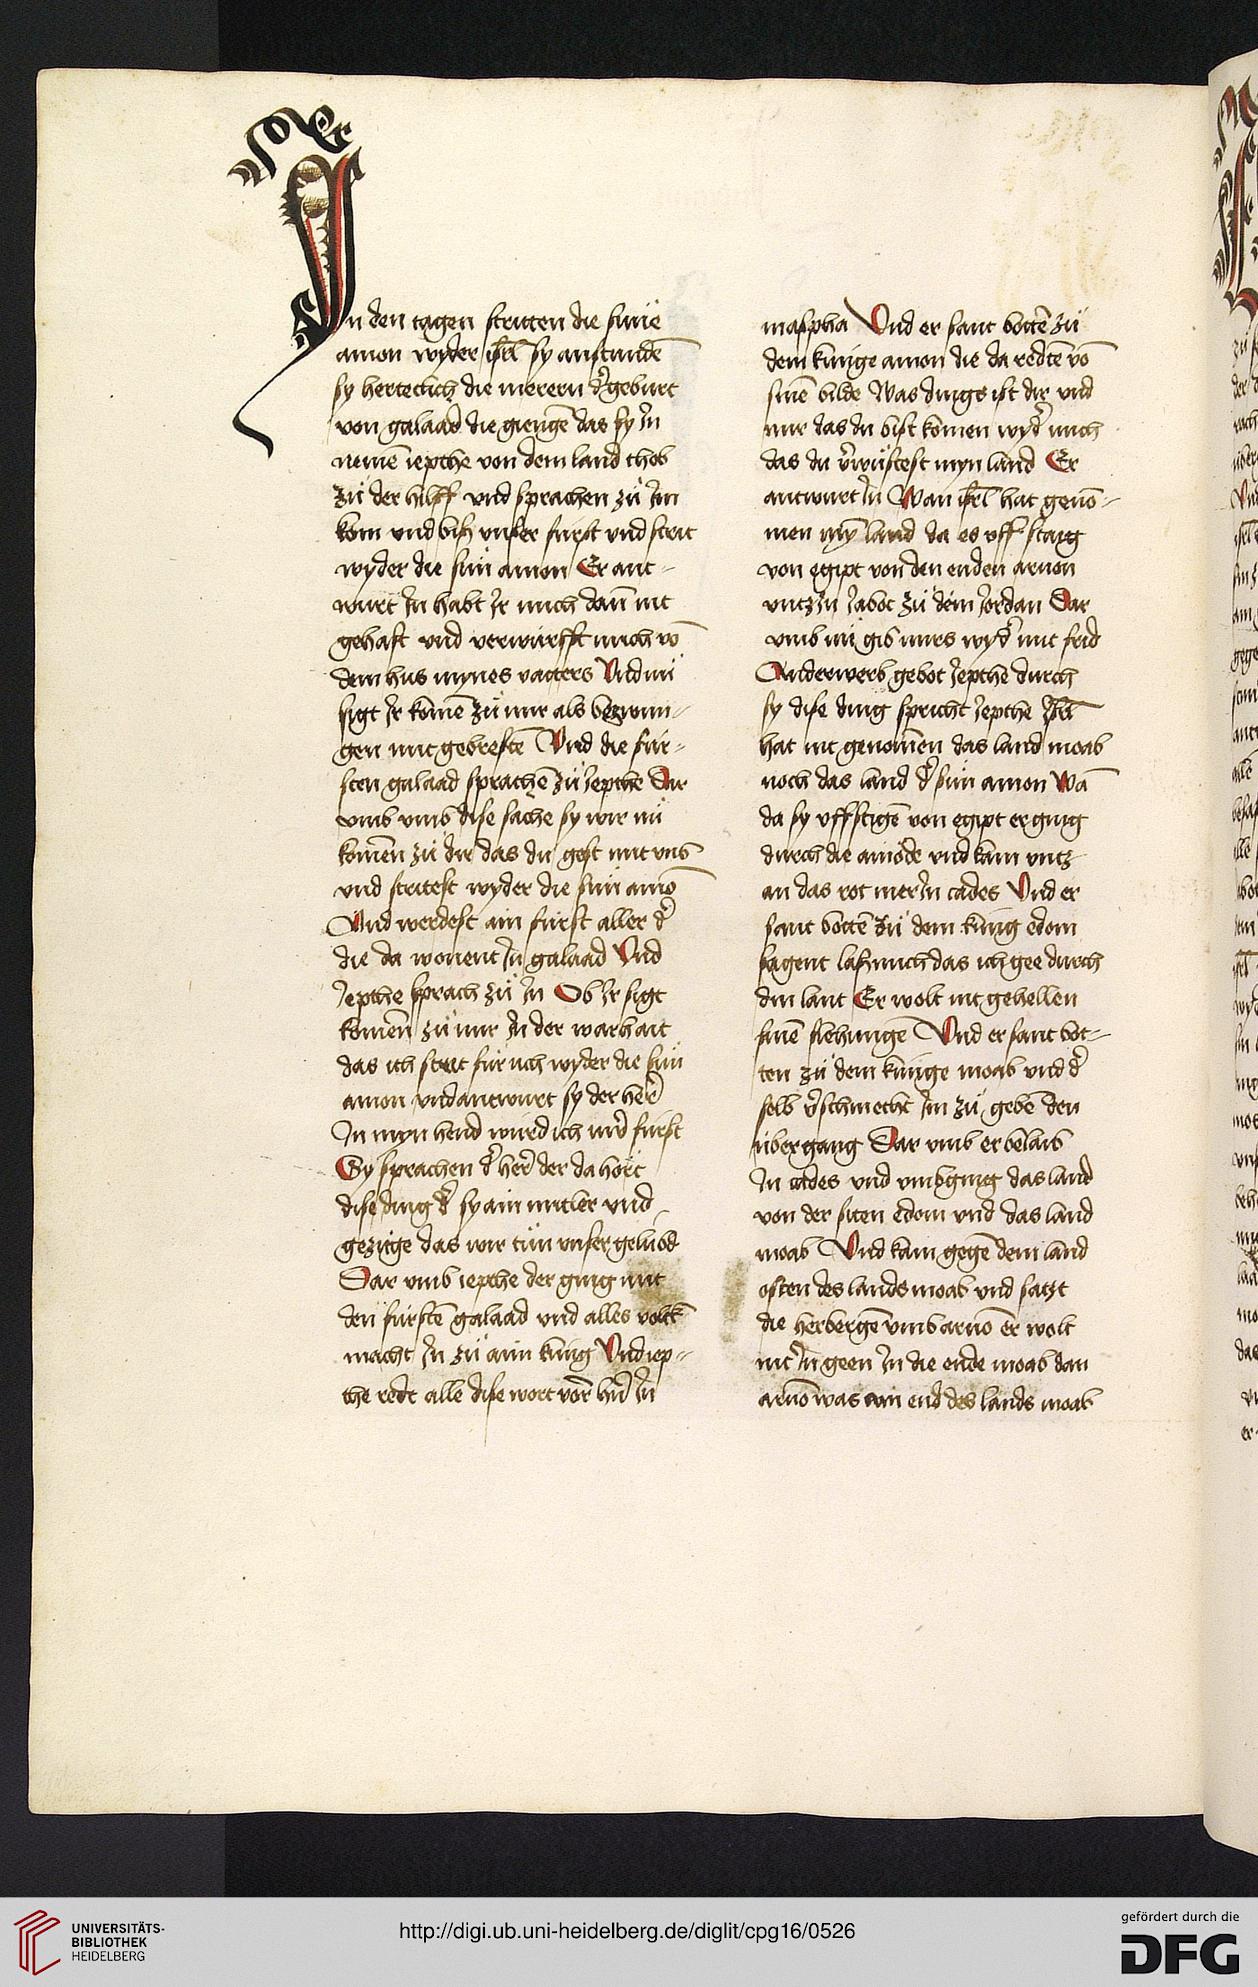 In den tagen stritten die sune
amon wyder isrl̄ sy anstundē
sy herteclich die merern d̕ geburt
von galaad die giengē das sy In
nemē iepthe von dem land thob
zů der hilff vnd sprachen zů Im
kom vnd bis vnser fúrst vnd strit
wyder die sún amon Er ant-
wurt In habt Ir mich dañ nit
gehast vnd verwúrfft mich vō
dem hus mynes vatters Vnd nů
sigt Ir komē zů mir als bezwun-
gen mit gebrestē Vnd die fúr-
sten galaad sprachē zů Iepthe Dar
vmb vmb dise sache sy wir nů
komen zů dir das du gest mit vns
vnd stritest wyder die sún amō
Vnd werdest ain fúrst aller d̕
die da wonent In galaad Vnd
Iepthe sprach zů In Ob Ir sigt
komen zů mir In der warhait
das ich strit fúr úch wyder die sún
amon vnd antwurt sy der herr̄
In myn hend wúrd ich úw̕ fúrst
Sy sprachen d̕ her̄ der da hört
dise ding d̕ sy ain mitler vnd
gezúge das wir tún vnser gelúbd
Dar vmb iepthe der ging mit
den fúrstē galaad vnd alles volck
macht In zů aim kúng Vnd iep-
the redt alle dise wort vor hr̄n In
maspha Vnd er sant bottē zů
dem kúnige amon die da redtē vō
sinē bilde Was dings ist dir vnd
mir das du bist komen wyd̕ mich
das du v̕wústest myn land Er
antwurt In Wan isrl̄ hat genō-
men myn̄ land da es vff staig
von egipt von den enden arnon
vntz In Iabot zů dem Iordan Dar
vmb nů gib mirs wyd̕ mit frid
Anderwerb gebot Iepthe durch
sy dise ding spricht Iepthe Isrl̄
hat nit genomen das land moab
noch das land d̕ sún amon Wā
da sy vffstigē von egipt er ging
durch die ainöde vnd kam vntz
an das rot mer In cades Vnd er
sant bottē zů dem kúng edom
sagent lasz mich das ich gee durch
din lant Er wolt nit gehellen
sinē flehungē Vnd er sant bot-
ten zů dem kúnige moab vnd d̕
selb v̕schmecht Im zů gebē den
úbergang Dar vmb er belaib
In cades vnd vmbging das land
von der siten edom vnd das land
moab Vnd kam gegē dem land
osten des lands moab vnd satzt
die herbergē vmb arnō er wolt
nit In geen In die ende moab dan
arnō was ain end des lands moab
UNIVERSITÄTS-
BIBLIOTHEK
HEIDELBERG
http://digi.ub.uni-heidelberg.de/diglit/cpg16/0526
gefördert durch die
DFG